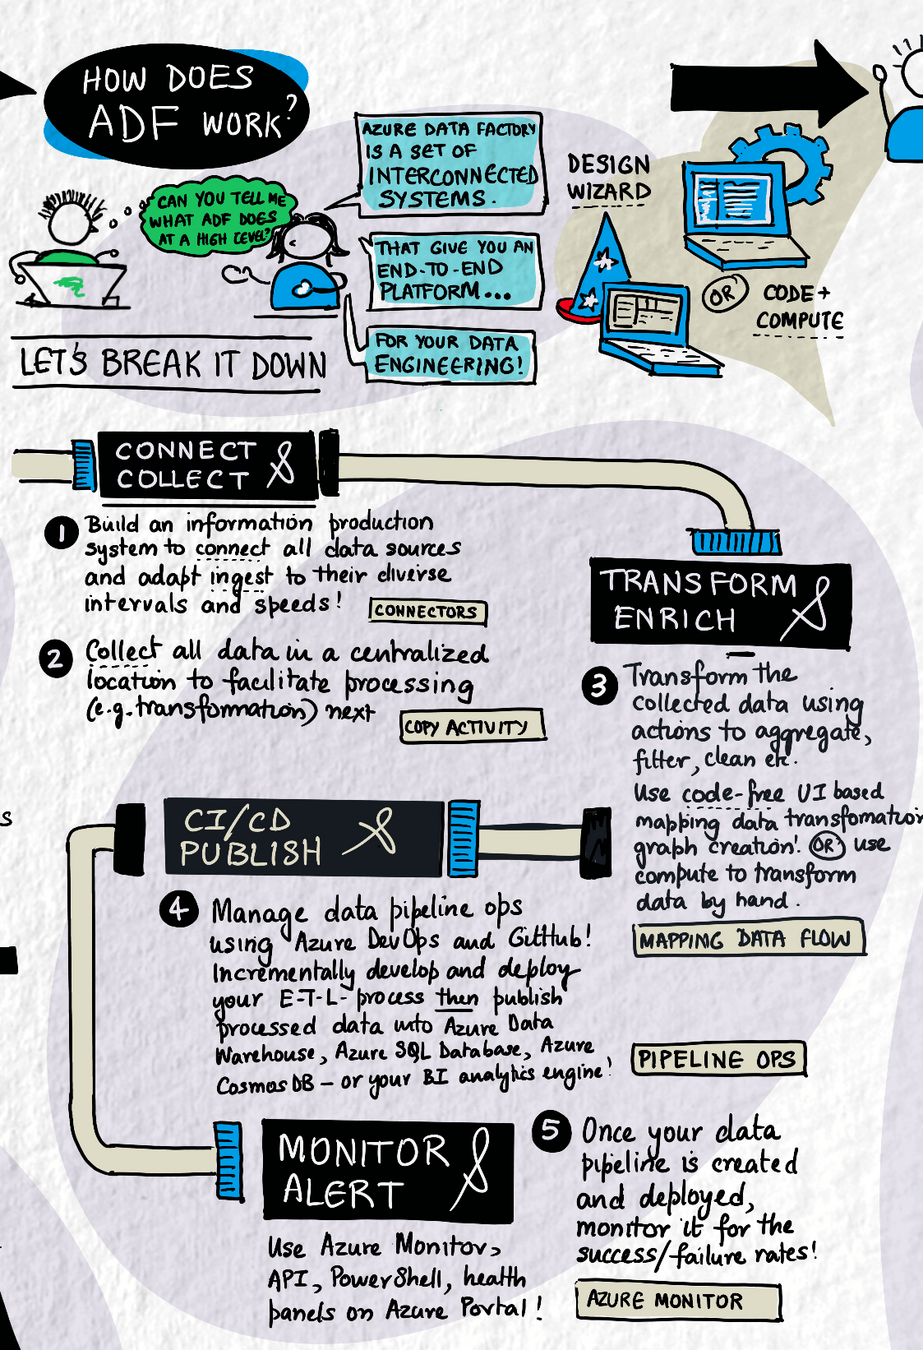 HOW DOES
ADF WORK?
CAN YOU TELL ME
WHAT ADF DOES
AT A HIGH LEVEL?
AZURE DATA FACTORY
IS A SET OF
INTERCONNECTED
SYSTEMS.
THAT GIVE YOU AN
END-TO-END
PLATFORM...
FOR YOUR DATA
ENGINEERING!
DESIGN
WIZARD
OR
CODE+
COMPUTE
LET'S BREAK IT DOWN
CONNECT &
COLLECT
1 Build an information production
system to connect all data sources
and adapt ingest to their diverse
intervals and speeds!
CONNECTORS
2 Collect all data in a centralized
location to facilitate processing
(e.g. transformation) next
COPY ACTIVITY
TRANSFORM &
ENRICH
3 Transform the
collected data using
actions to aggregate,
filter, clean etc.
Use code-free UI based
mapping data transfomation
graph creation! OR use
compute to transform
data by hand.
MAPPING DATA FLOW
CI/CD &
PUBLISH
4 Manage data pipeline ops
using Azure DevOps and GitHub!
Incrementally develop and deploy
your E-T-L- process then publish
processed data into Azure Data
Warehouse, Azure SQL Database, Azure
Cosmos DB - or your BI analytics engine!
PIPELINE OPS
MONITOR &
ALERT
Use Azure Monitor,
API, PowerShell, health
panels on Azure Portal!
5 Once your data
pipeline is created
and deployed,
monitor it for the
success/failure rates!
AZURE MONITOR